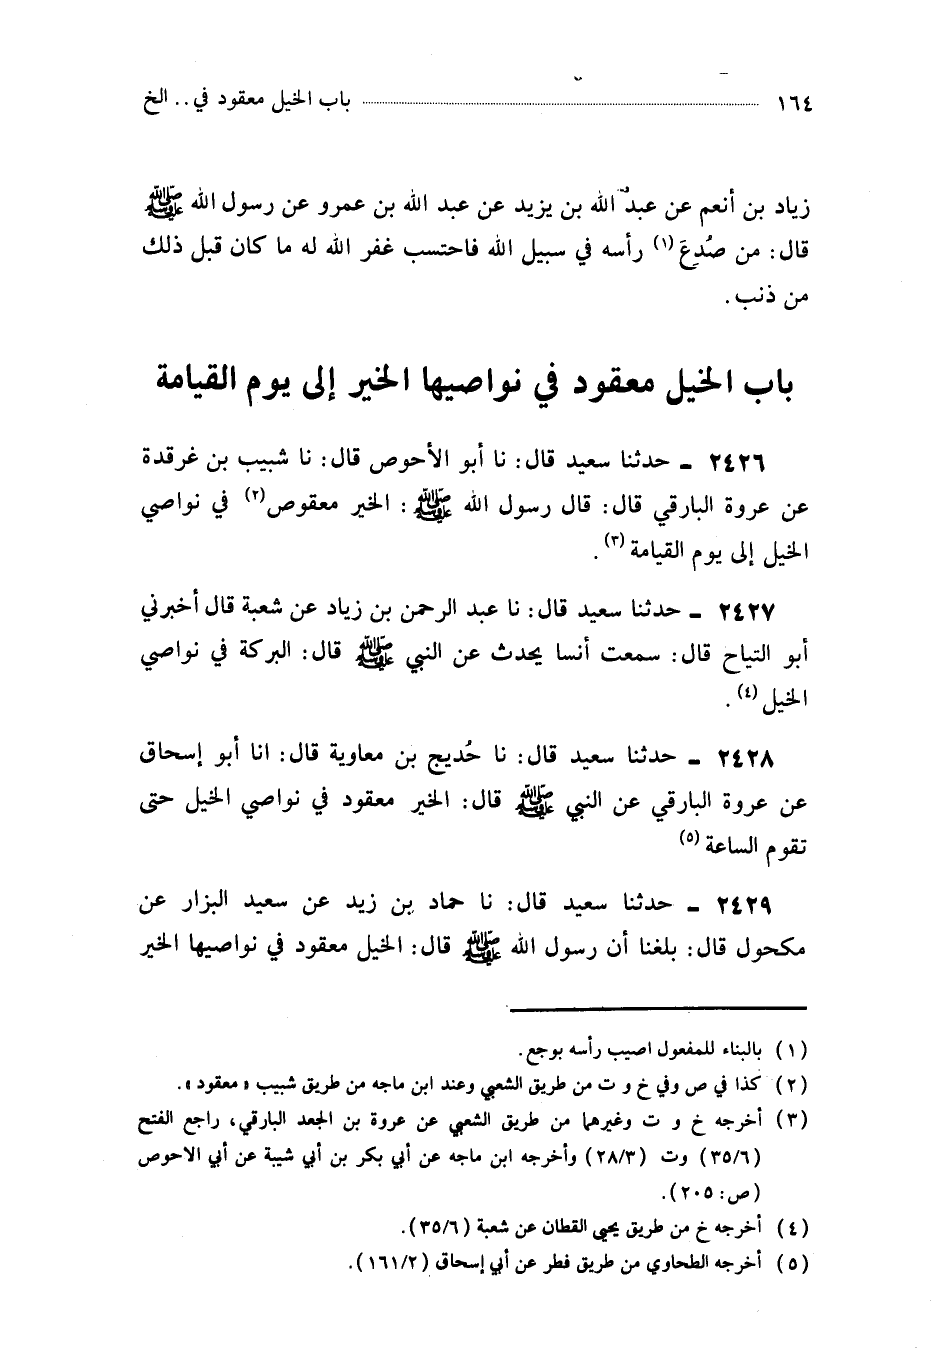 ١٦٤ باب الخيل معقود في .. الخ
زياد بن أنعم عن عبد الله بن يزيد عن عبد الله بن عمرو عن رسول الله ﷺ
قال: من صُدِعَ (١) رأسه في سبيل الله فاحتسب غفر الله له ما كان قبل ذلك
من ذنب.
باب الخيل معقود في نواصيها الخير إلى يوم القيامة
٢٤٢٦ ـ حدثنا سعيد قال: نا أبو الأحوص قال: نا شبيب بن غرقدة
عن عروة البارقي قال: قال رسول الله ﷺ: الخير معقوص (٢) في نواصي
الخيل إلى يوم القيامة (٣).
٢٤٢٧ ـ حدثنا سعيد قال: نا عبد الرحمن بن زياد عن شعبة قال أخبرني
أبو التياح قال: سمعت أنسا يحدث عن النبي ﷺ قال: البركة في نواصي
الخيل (٤).
٢٤٢٨ ـ حدثنا سعيد قال: نا حُديج بن معاوية قال: انا أبو إسحاق
عن عروة البارقي عن النبي ﷺ قال: الخير معقود في نواصي الخيل حتى
تقوم الساعة (٥)
٢٤٢٩ ـ حدثنا سعيد قال: نا حماد بن زيد عن سعيد البزار عن
مكحول قال: بلغنا أن رسول الله ﷺ قال: الخيل معقود في نواصيها الخير
(١) بالبناء للمفعول اصيب رأسه بوجع.
(٢) كذا في ص وفي خ و ت من طريق الشعبي وعند ابن ماجه من طريق شبيب «معقود».
(٣) أخرجه خ و ت وغيرهما من طريق الشعبي عن عروة بن الجعد البارقي، راجع الفتح
(٣٥/٦) وت (٢٨/٣) وأخرجه ابن ماجه عن أبي بكر بن أبي شيبة عن أبي الاحوص
(ص: ٢٠٥).
(٤) أخرجه خ من طريق يحيى القطان عن شعبة (٣٥/٦).
(٥) أخرجه الطحاوي من طريق فطر عن أبي إسحاق (١٦١/٢).